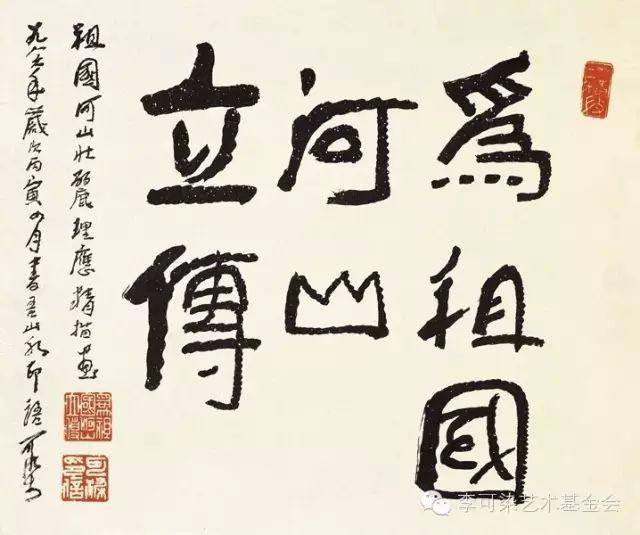 爲祖國
河山
立傳
祖國河山壯麗理應精描畫
一九八六年歲次丙寅四月書吾山水印語可染
爲祖國河山立傳
李可染艺术基金会